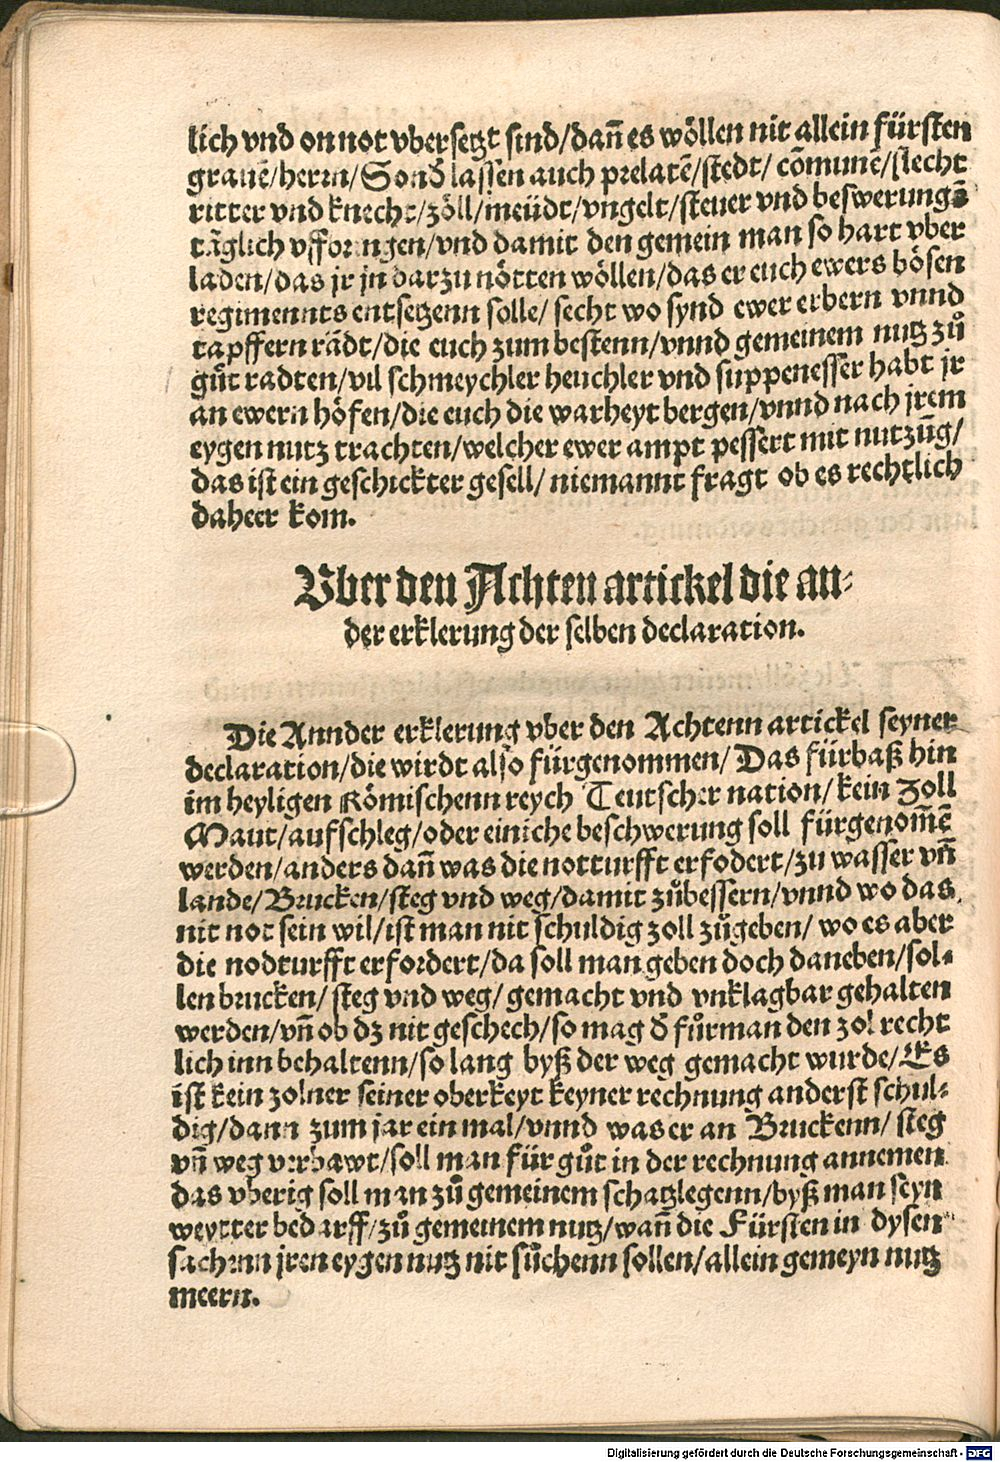 lich vnd on not vbersetzt sind/dañ es wöllen nit allein fürsten
grauē/herrn/Sonð lassen auch prelatē/stedt/ cōmunē/slecht
ritter vnd knecht/zöll/meüdt/vngelt/steuer vnd beswerungē
täglich vffbringen/vnd damit den gemein man so hart vber
laden/das jr jn darzu nötten wöllen/das er euch ewers bösen
regimennts entsetzenn solle/ secht wo synd ewer erbern vnnd
tapffern rädt/die euch zum bestenn/vnnd gemeinem nutz zů
gůt radten/vil schmeychler heuchler vnd suppenesser habt jr
an ewern höfen/die euch die warheyt bergen/vnnd nach jrem
eygen nutz trachten/welcher ewer ampt pessert mit nutzūg/
das ist ein geschickter gesell/ niemannt fragt ob es rechtlich
daheer kom.
Vber den Achten artickel die an-
der erklerung der selben declaration.
Die Annder erklerung vber den Achtenn artickel seyner
declaration/die wirdt also fürgenommen/ Das fürbaß hin
im heyligen Römischenn reych Teutscher nation/kein Zoll
Maut/aufschleg/oder einiche beschwerung soll fürgenom̃ē
werden/anders dañ was die notturfft erfodert/zu wasser vñ
lande/Brucken/steg vnd weg/damit zůbessern/vnnd wo das
nit not sein wil/ist man nit schuldig zoll zůgeben/ wo es aber
die nodturfft erfordert/da soll man geben doch daneben/sol-
len brucken/ steg vnd weg/ gemacht vnd vnklagbar gehalten
werden/vñ ob dz nit geschech/so mag ð fůrman den zol recht
lich inn behaltenn/so lang byß der weg gemacht wurde/Es
ist kein zolner seiner oberkeyt keyner rechnung anderst schul-
dig/dann zum jar ein mal/vnnd was er an Bruckenn/ steg
vñ weg verbawt/soll man für gůt in der rechnung annemen
das vberig soll man zů gemeinem schatzlegenn/byß man seyn
weytter bedarff/zů gemeinem nutz/wañ die Fürsten in dysen
sachenn jren eygen nutz nit sůchenn sollen/allein gemeyn nutz
meern.
Digitalisierung gefördert durch die Deutsche Forschungsgemeinschaft - DFG